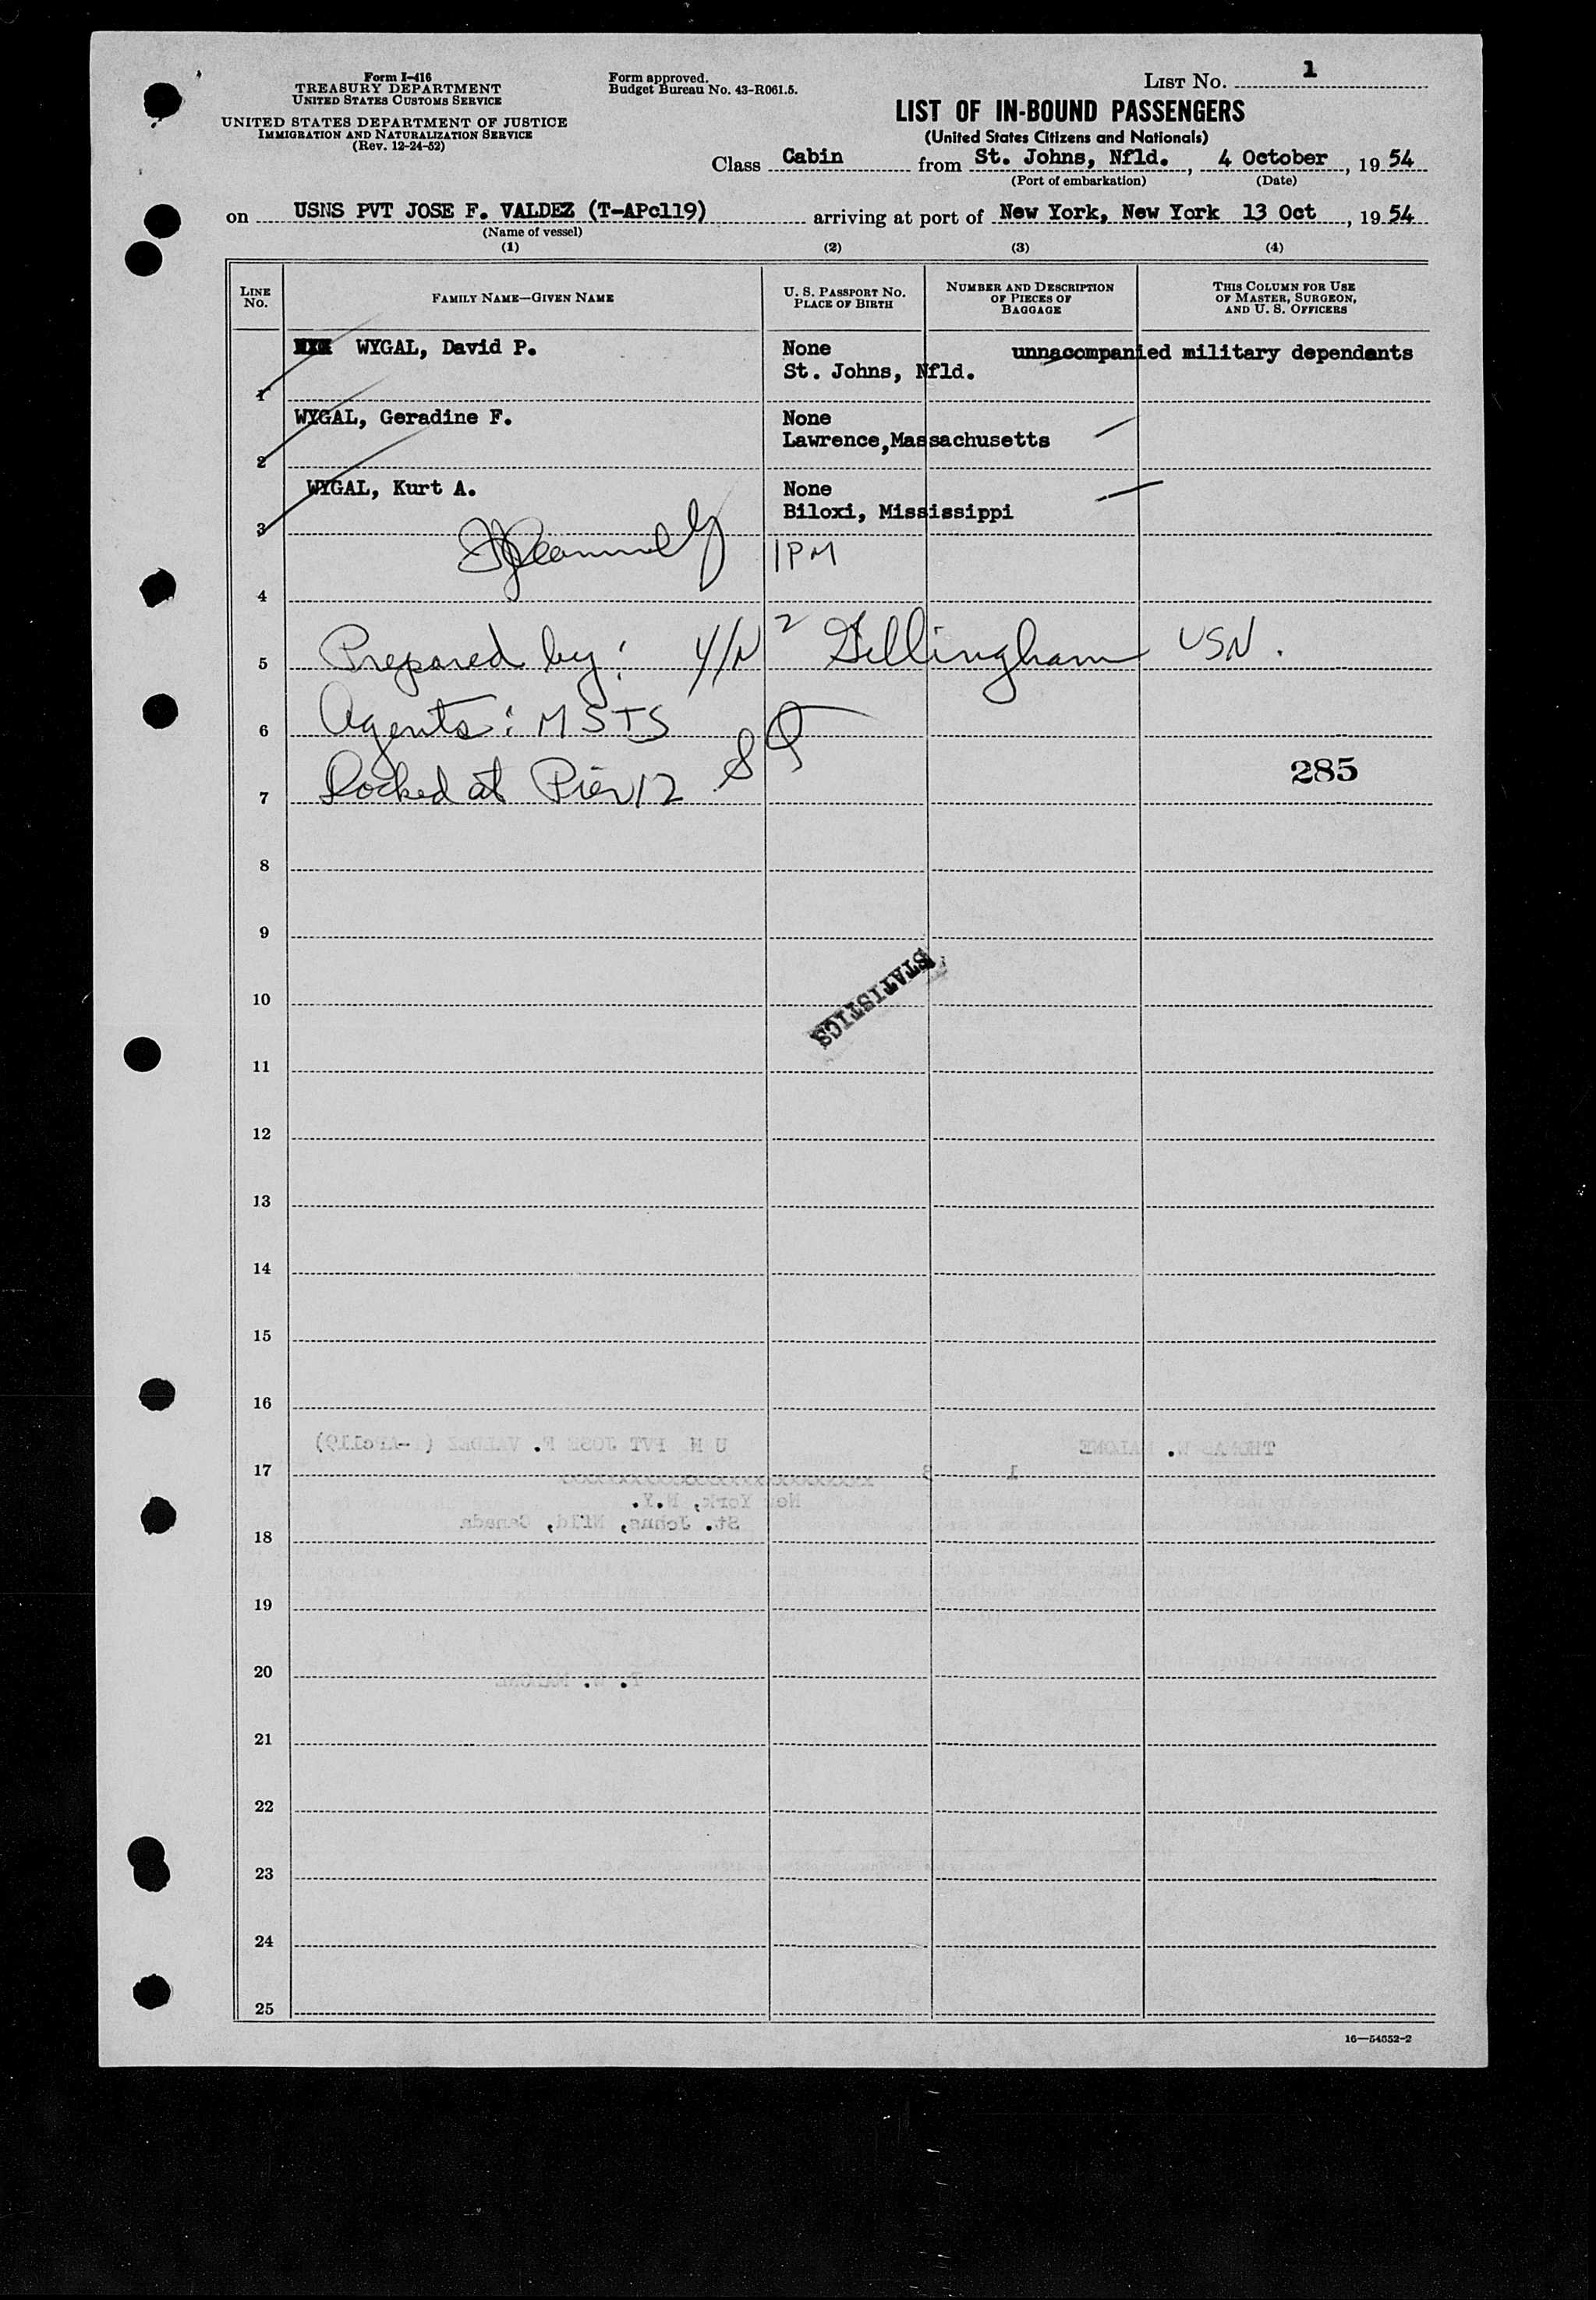 Form I-416
TREASURY DEPARTMENT
UNITED STATES CUSTOMS SERVICE
UNITED STATES DEPARTMENT OF JUSTICE
IMMIGRATION AND NATURALIZATION SERVICE
(Rev. 12-24-52)
Form approved.
Budget Bureau No. 43-R061.5.
LIST NO. 1
LIST OF IN-BOUND PASSENGERS
(United States Citizens and Nationals)
Class Cabin from St. Johns, Nfld., 4 October, 19 54
(Port of embarkation) (Date)
on USNS PVT JOSE F. VALDEZ (T-APc119) arriving at port of New York, New York 13 Oct, 19 54
(Name of vessel)
(1) (2) (3) (4)
LINE NO. FAMILY NAME—GIVEN NAME U. S. PASSPORT NO. PLACE OF BIRTH NUMBER AND DESCRIPTION OF PIECES OF BAGGAGE THIS COLUMN FOR USE OF MASTER, SURGEON, AND U. S. OFFICERS
WYGAL, David P. None unnacompanied military dependents
1 St. Johns, Nfld.
WYGAL, Geradine F. None
2 Lawrence,Massachusetts
WYGAL, Kurt A. None
3 Biloxi, Mississippi
1PM
4
5 Prepared by: Y/N 2 Gillingham USN.
6 Agents: MSTS
7 Docked at Pier 12 285
8
9
STATISTICS
10
11
12
13
14
15
16
U N PVT JOSE F. VALDEZ ( -APc119) THOMAS W. MALONE
17 1 3
New York, N.Y.
St. Johns, Nfld, Canada
18
19
20
T. W. MALONE
21
22
23
24
25
16—54652-2